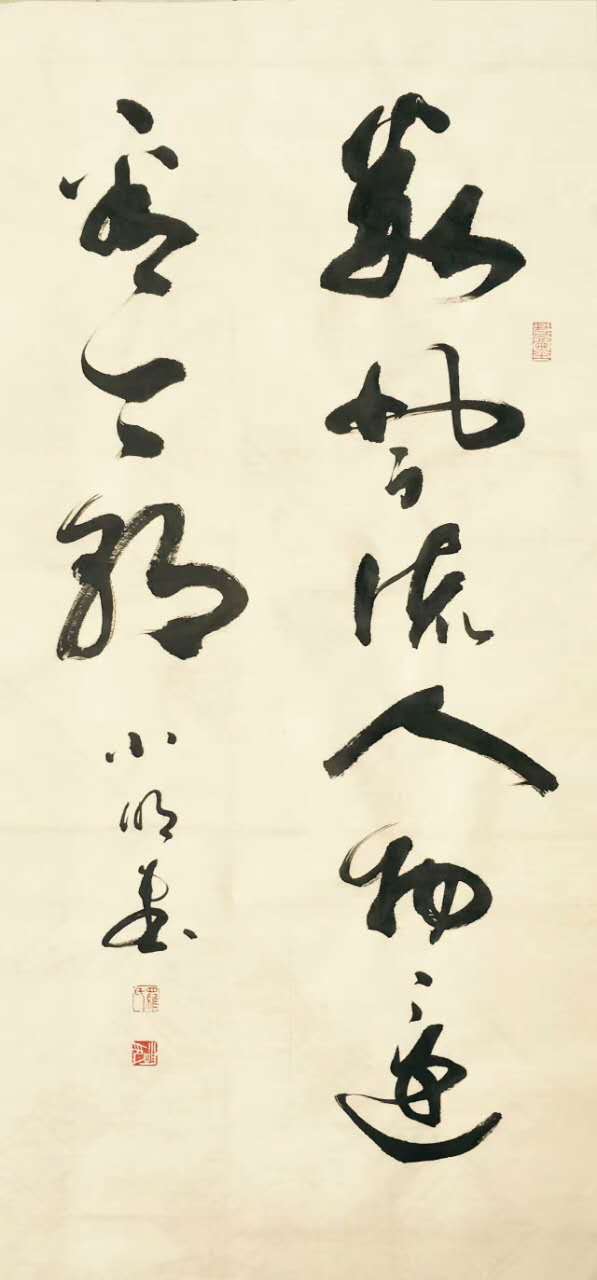 数风流人物还
看今朝
小明书
羅氏